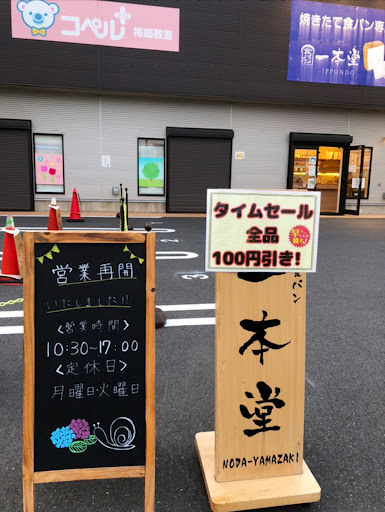 コペル+
梅郷教室
焼きたて食パン専
一本堂
IPPONDO
タイムセール
全品
早い者勝ち!
100円引き!
営業再開
いたしました!!
〈営業時間〉
10:30～17:00
〈定休日〉
月曜日・火曜日
パン
一本堂
NODA-YAMAZAKI